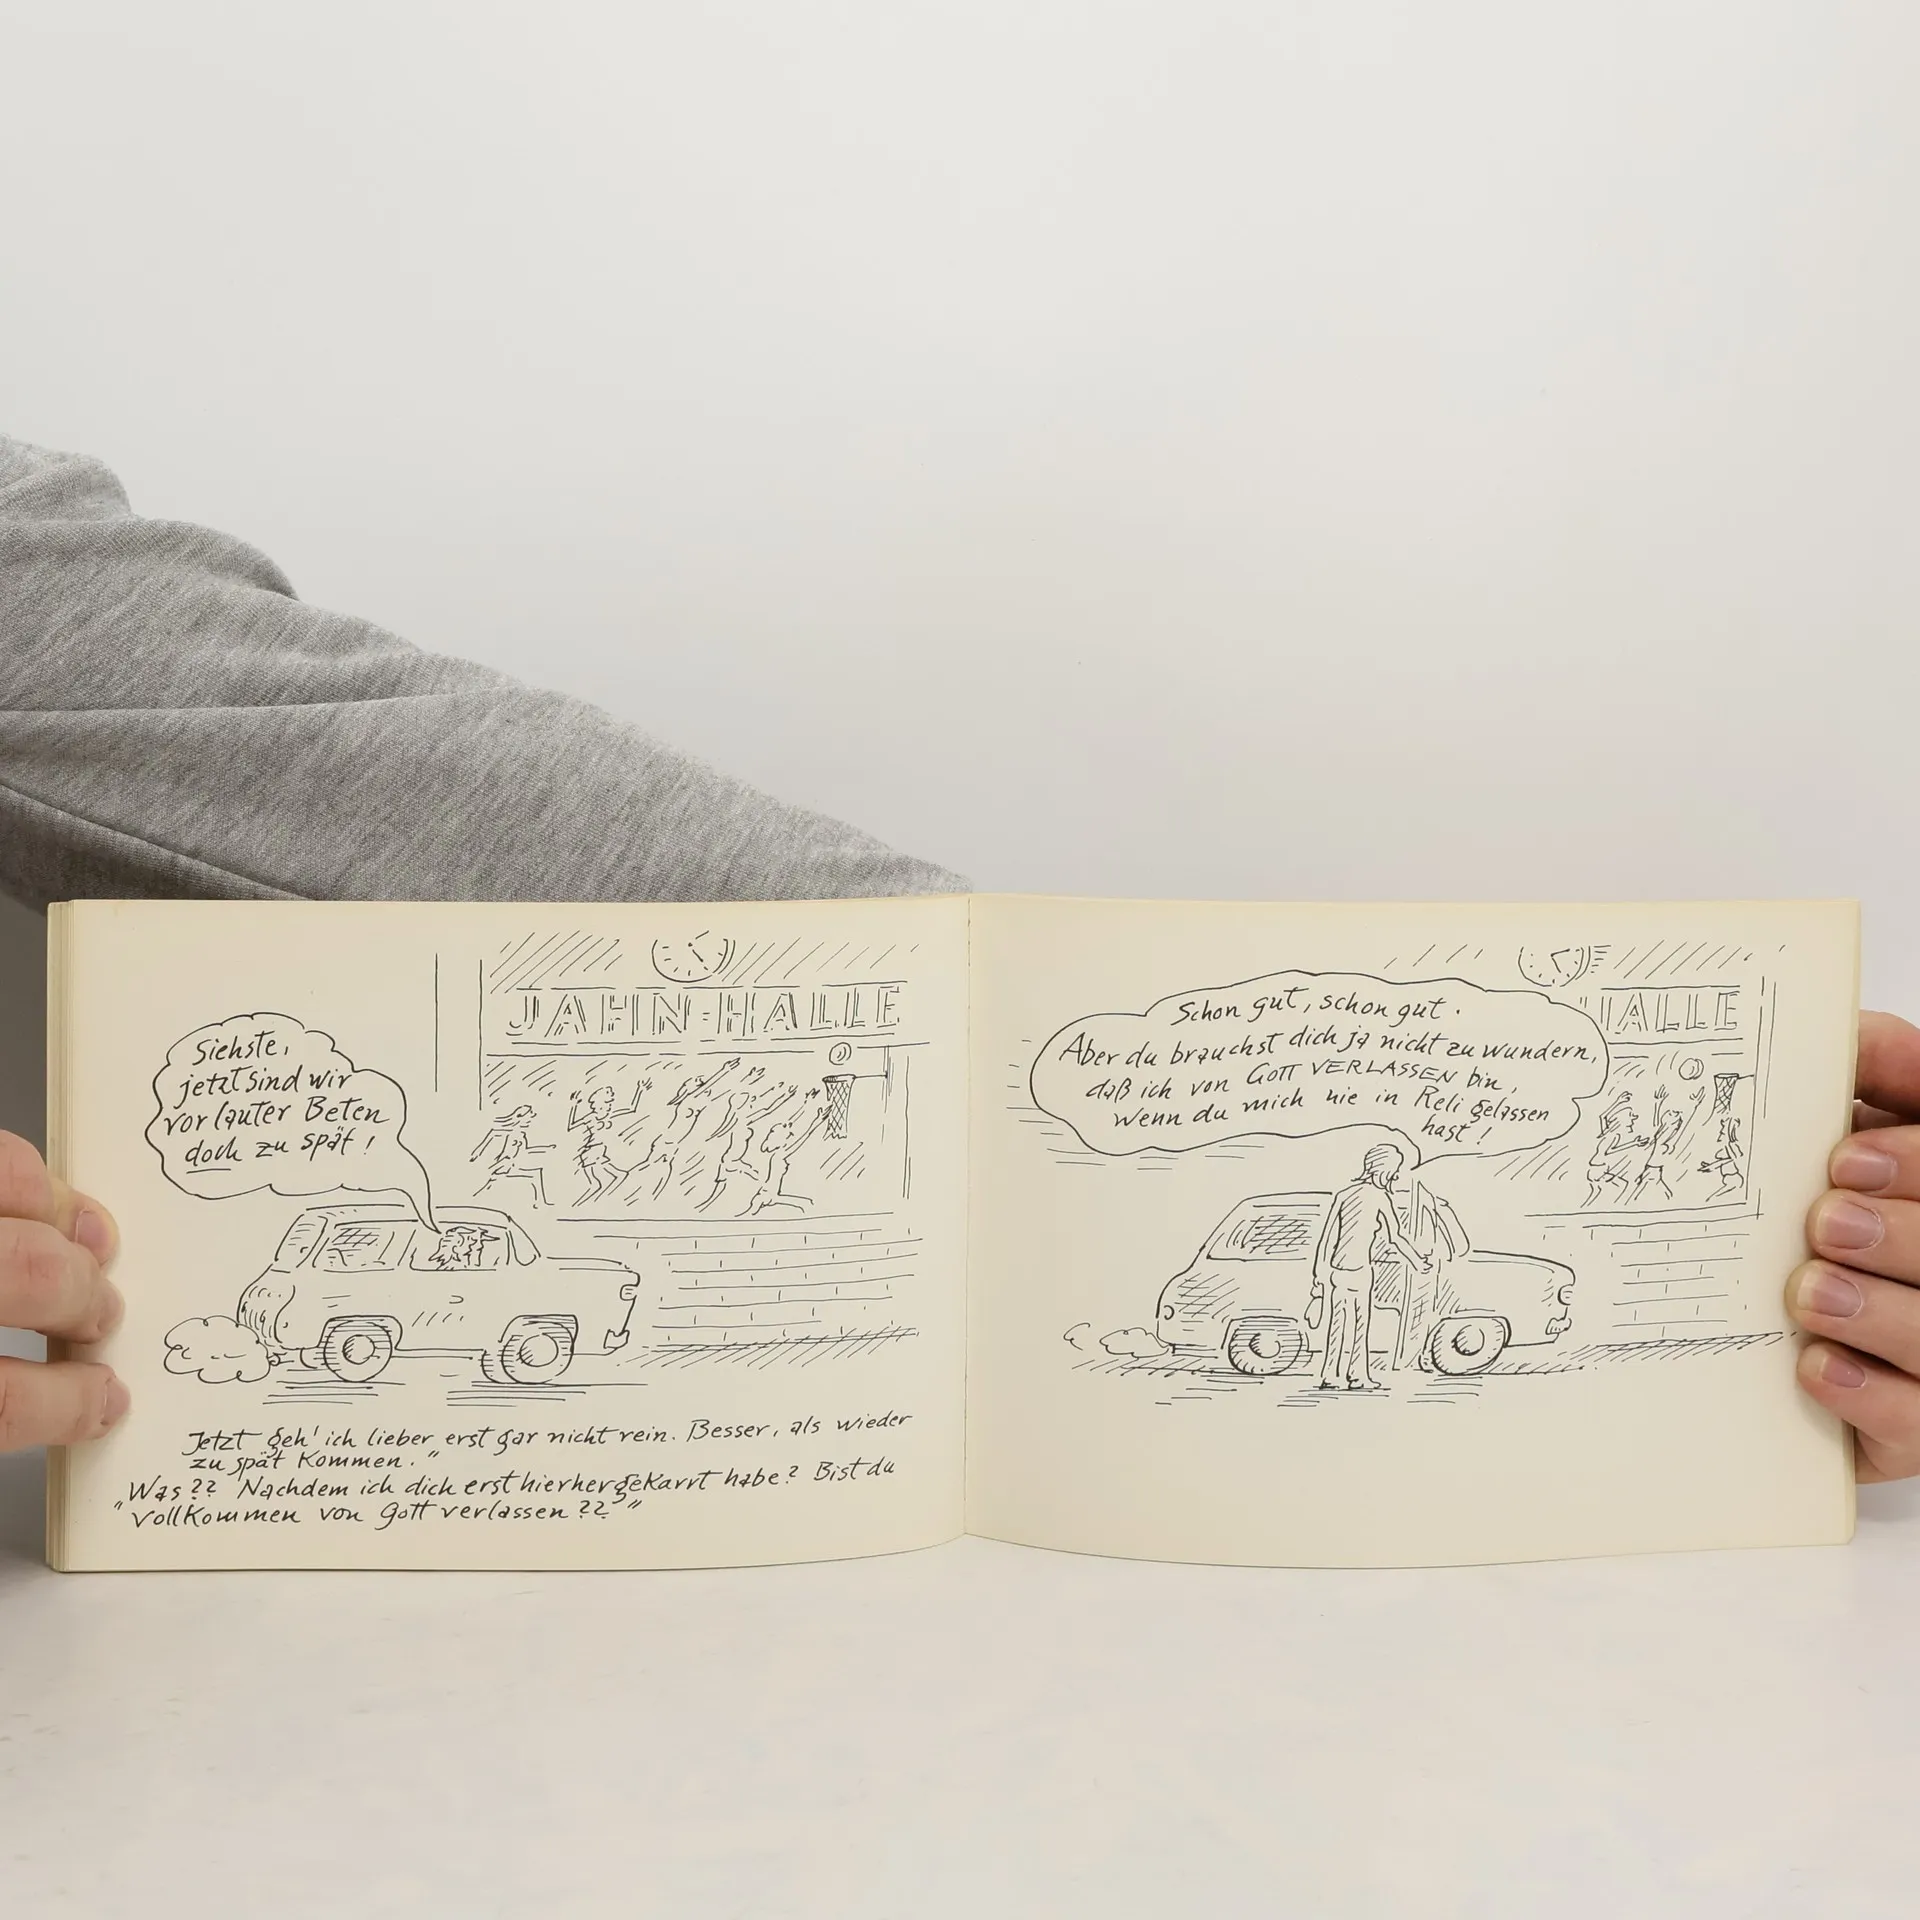 JAHN-HALLE
Siehste,
jetzt sind wir
vor lauter Beten
doch zu spät!
Jetzt geh' ich lieber erst gar nicht rein. Besser, als wieder
zu spät kommen."
"Was?? Nachdem ich dich erst hierhergekarrt habe? Bist du
vollkommen von Gott verlassen??"
HALLE
Schon gut, schon gut.
Aber du brauchst dich ja nicht zu wundern,
daß ich von GOTT VERLASSEN bin,
wenn du mich nie in Reli gelassen
hast!